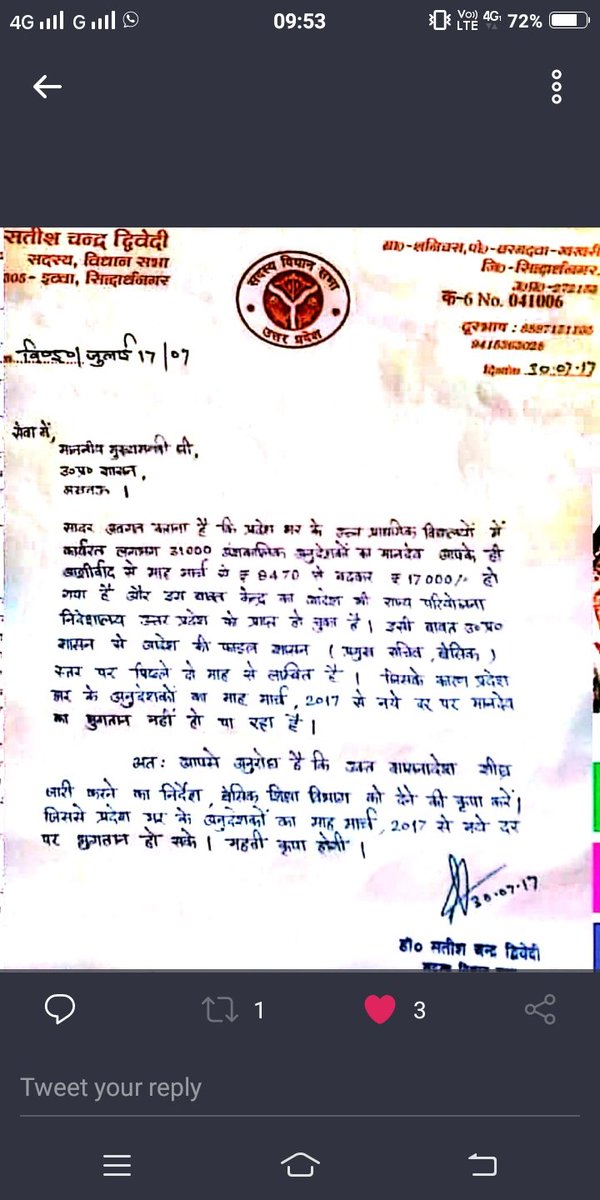 4G G 09:53 Vo) LTE 4G 72%
सतीश चन्द्र द्विवेदी
सदस्य, विधान सभा
305- इटवा, सिद्धार्थनगर
सदस्य विधान सभा
उत्तर प्रदेश
जि०-सिद्धार्थनगर
क-6 No. 041006
दूरभाष :
दिनांक 30.07.17
जुलाई 17/07
सेवा में,
माननीय मुख्यमन्त्री जी,
उ०प्र० शासन,
लखनऊ ।
सादर अवगत कराना है कि प्रदेश भर के उच्च प्राथमिक विद्यालयों में
कार्यरत लगभग 31000 अंशकालिक अनुदेशकों का मानदेय आपके ही
आशीर्वाद से माह मार्च से ₹ 8470 से बढ़कर ₹ 17000/- हो
गया है और केन्द्र का आदेश भी राज्य परियोजना
निदेशालय उत्तर प्रदेश को प्राप्त हो चुका है । इसी बावत उ०प्र०
शासन से आदेश की फाइल शासन ( प्रमुख सचिव, बेसिक )
स्तर पर पिछले दो माह से लम्बित है । जिसके कारण प्रदेश
भर के अनुदेशकों का माह मार्च, 2017 से नये दर पर मानदेय
का भुगतान नहीं हो पा रहा है ।
अतः आपसे अनुरोध है कि उक्त शासनादेश शीघ्र
जारी करने का निर्देश, बेसिक शिक्षा विभाग को देने की कृपा करें।
जिससे प्रदेश भर के अनुदेशकों का माह मार्च, 2017 से नये दर
पर भुगतान हो सके । महती कृपा होगी ।
30.07.17
डॉ० सतीश चन्द्र द्विवेदी
1 3
Tweet your reply